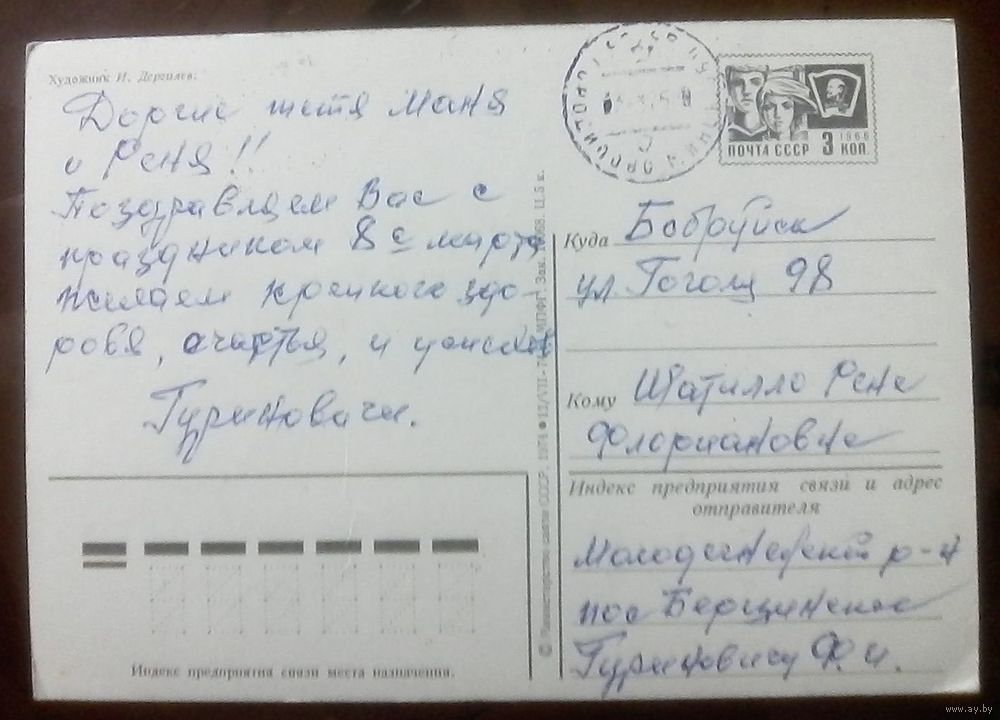 Художник И. Дергилев.
Дорогие тетя Маня
и Реня!!
Поздравляем Вас с
праздником 8 с марта
желаем крепкого здо-
ровя, счастья, и успехов
Гуриновичи.
Индекс предприятия связи места назначения.
© Министерство связи СССР. 1974 МПФГ. Зак. Ц. 5 к.
ПОЧТА СССР 3 КОП. 1966
Куда Бобруйск
ул. Гоголя 98
Кому Шатилло Рене
Флориановне
Индекс предприятия связи и адрес
отправителя
р-н
пос
Гуринович Ф. И.
www.ay.by